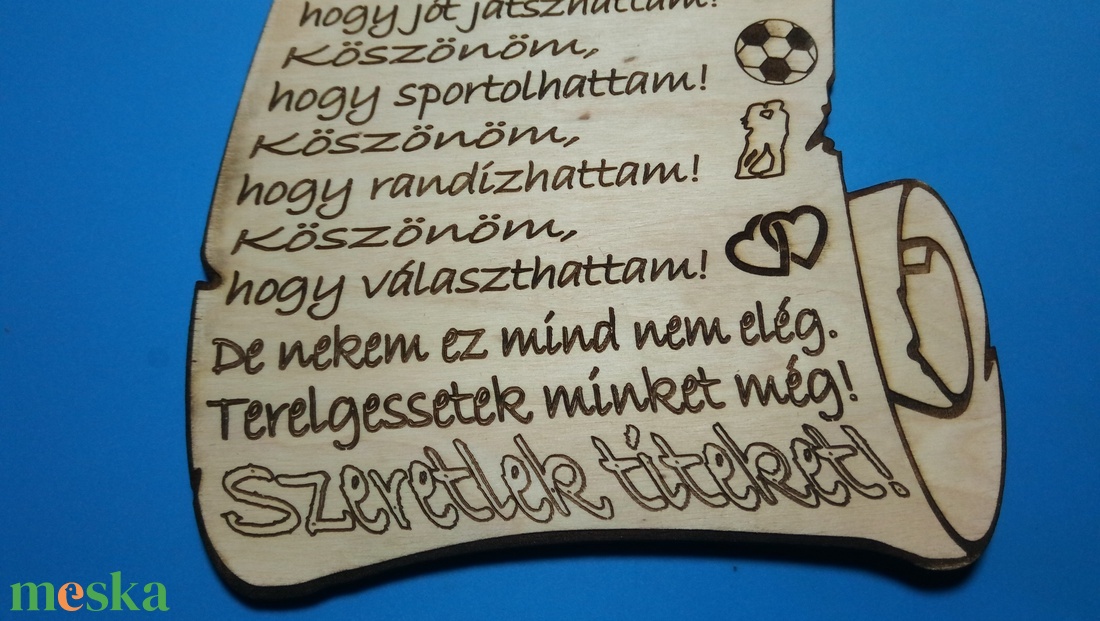 hogy jót játszhattam!
Köszönöm,
hogy sportolhattam!
Köszönöm,
hogy randízhattam!
Köszönöm,
hogy választhattam!
De nekem ez mínd nem elég.
Terelgessetek mínket még!
Szeretlek títeket!
meska